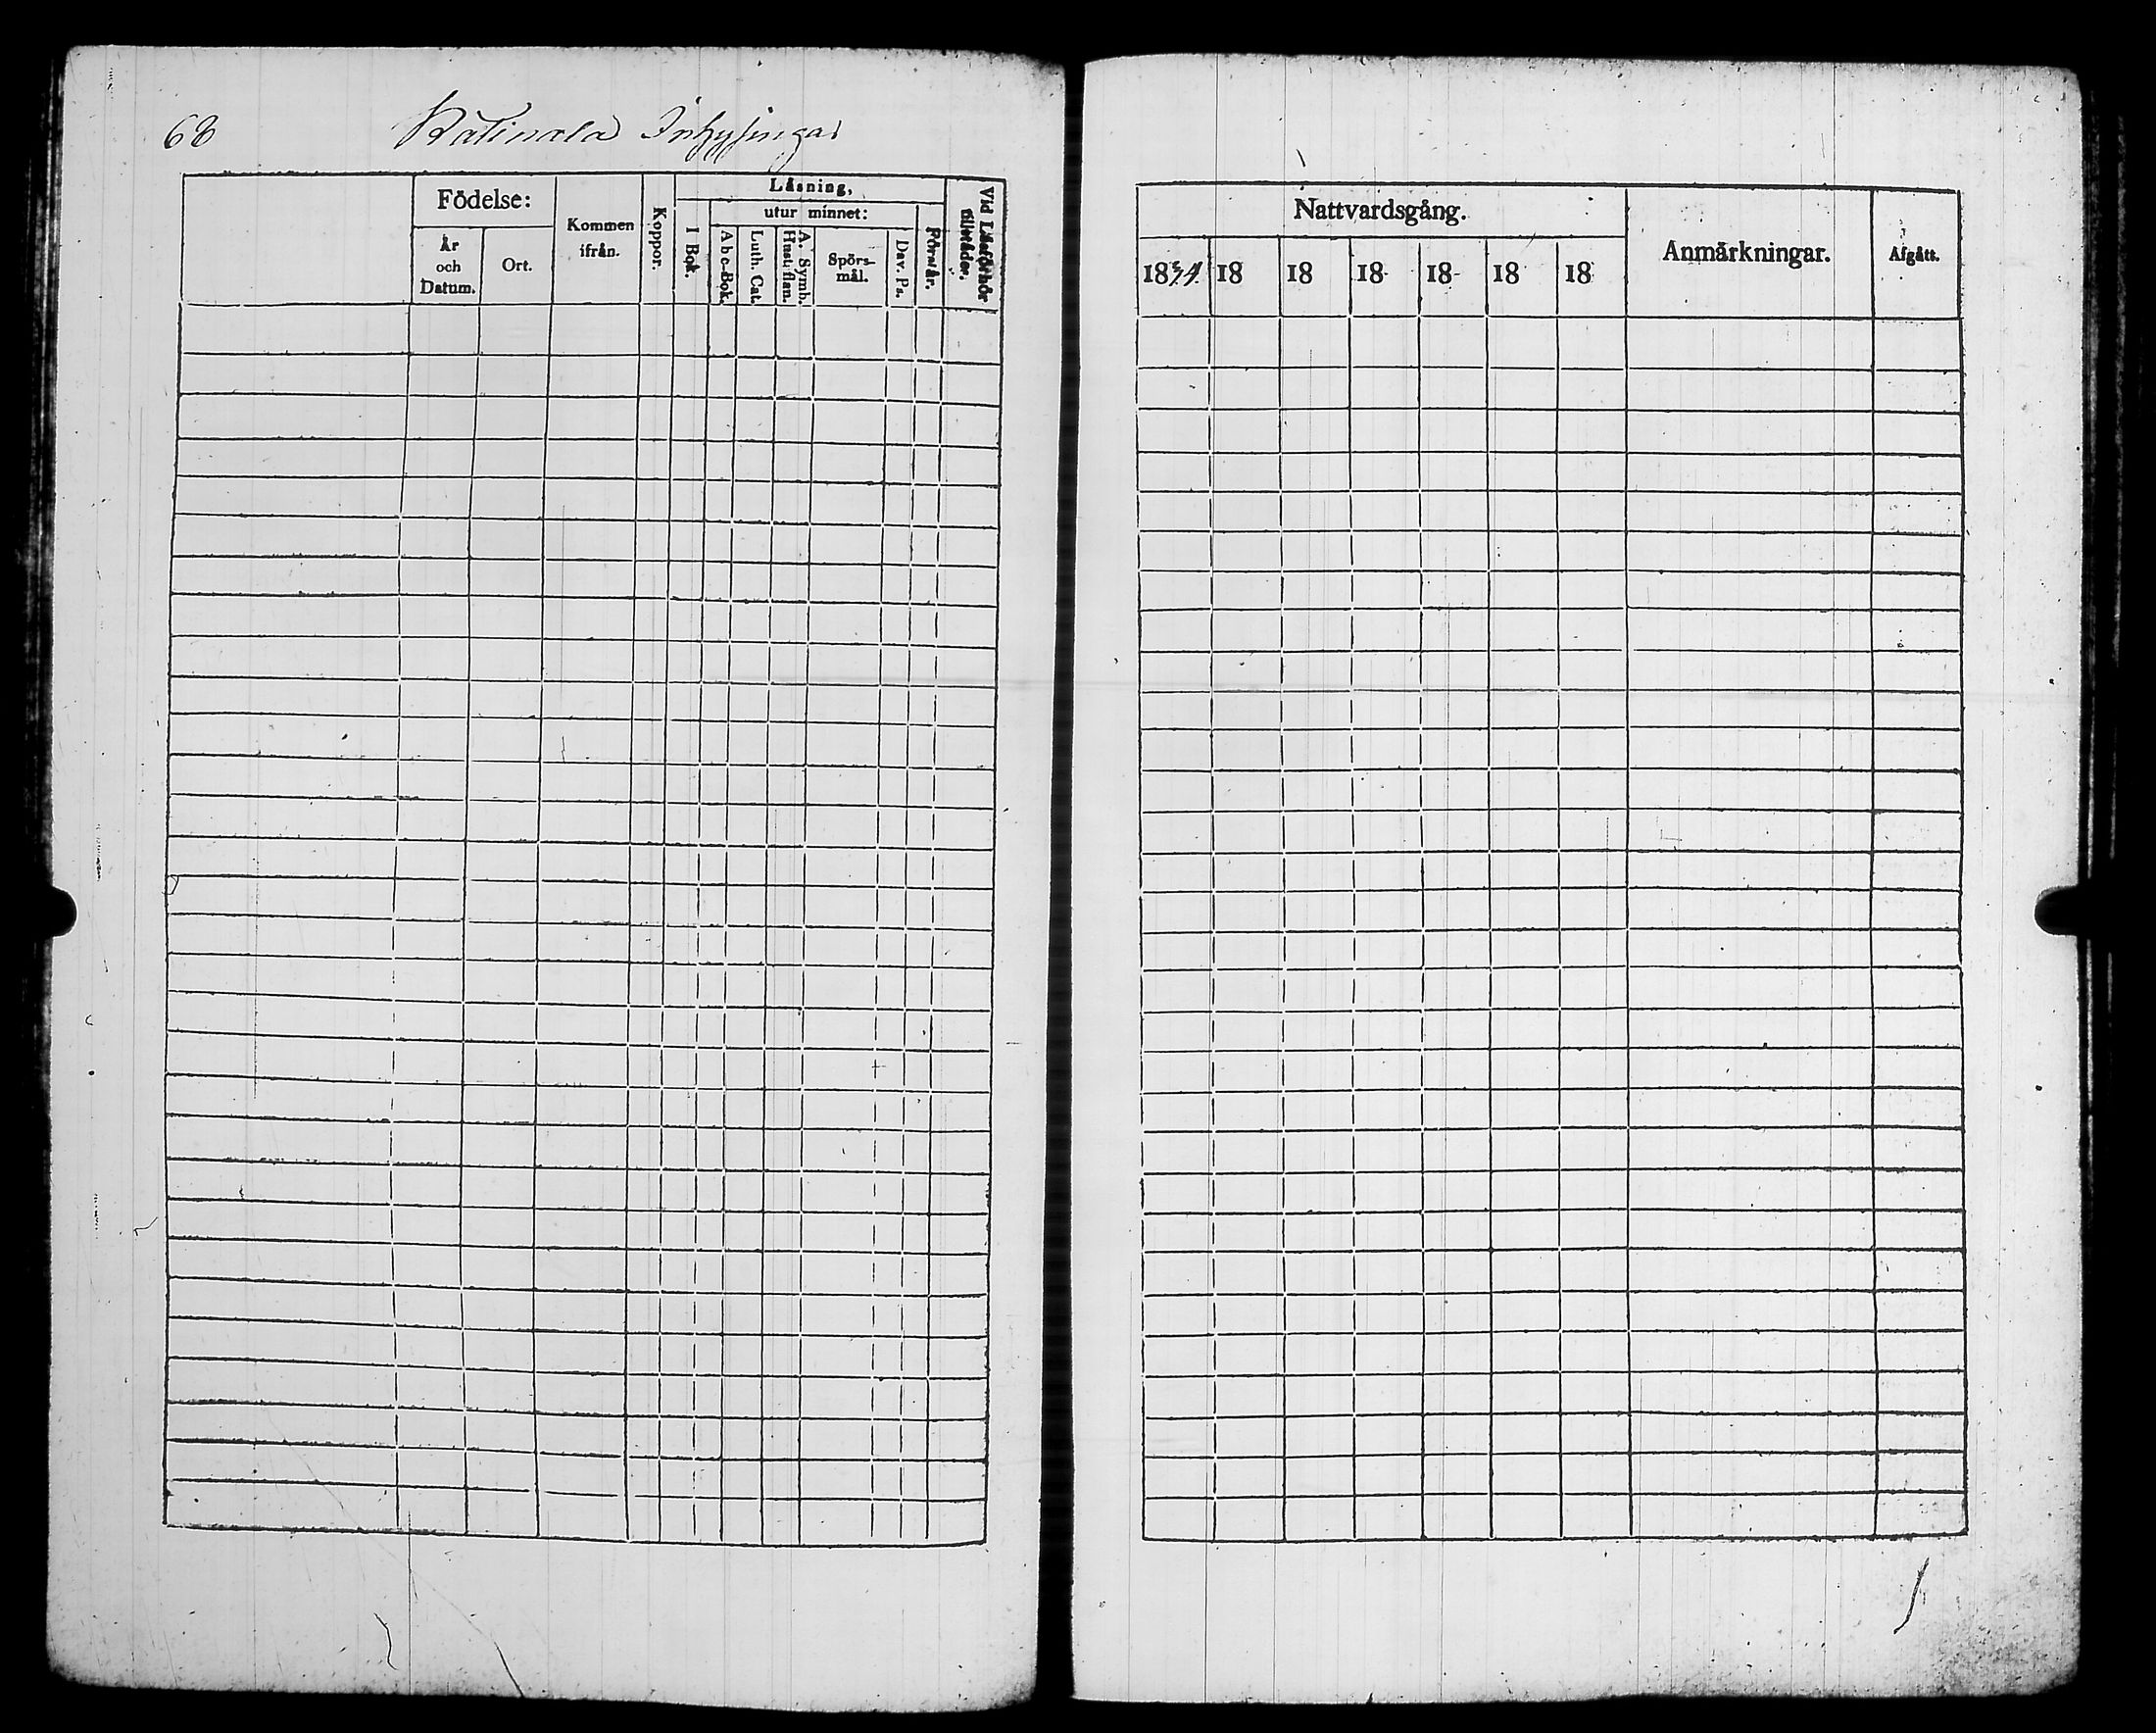 68 Inhysingar
Födelse:
År
och
Datum.
Ort.
Kommen
ifrån.
Koppor.
Läsning,
I Bok.
utur minnet:
Abc-Bok.
Luth. Cat.
A. Symb.
Hust:flan.
Spörs-
mål.
Dav. Ps.
Förstår.
Vid Läsförhör
tillstädes.
Nattvardsgång.
1834 18 18 18 18 18 18
Anmärkningar.
Afgått.